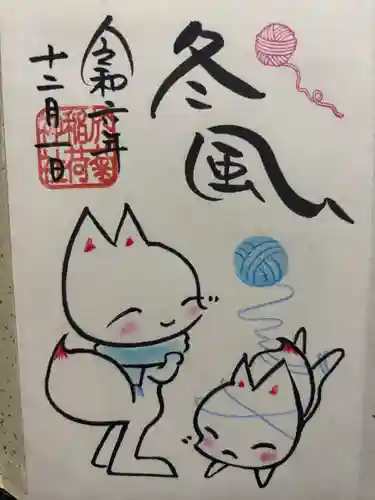 冬風
令和六年
十二月一日
稲荷